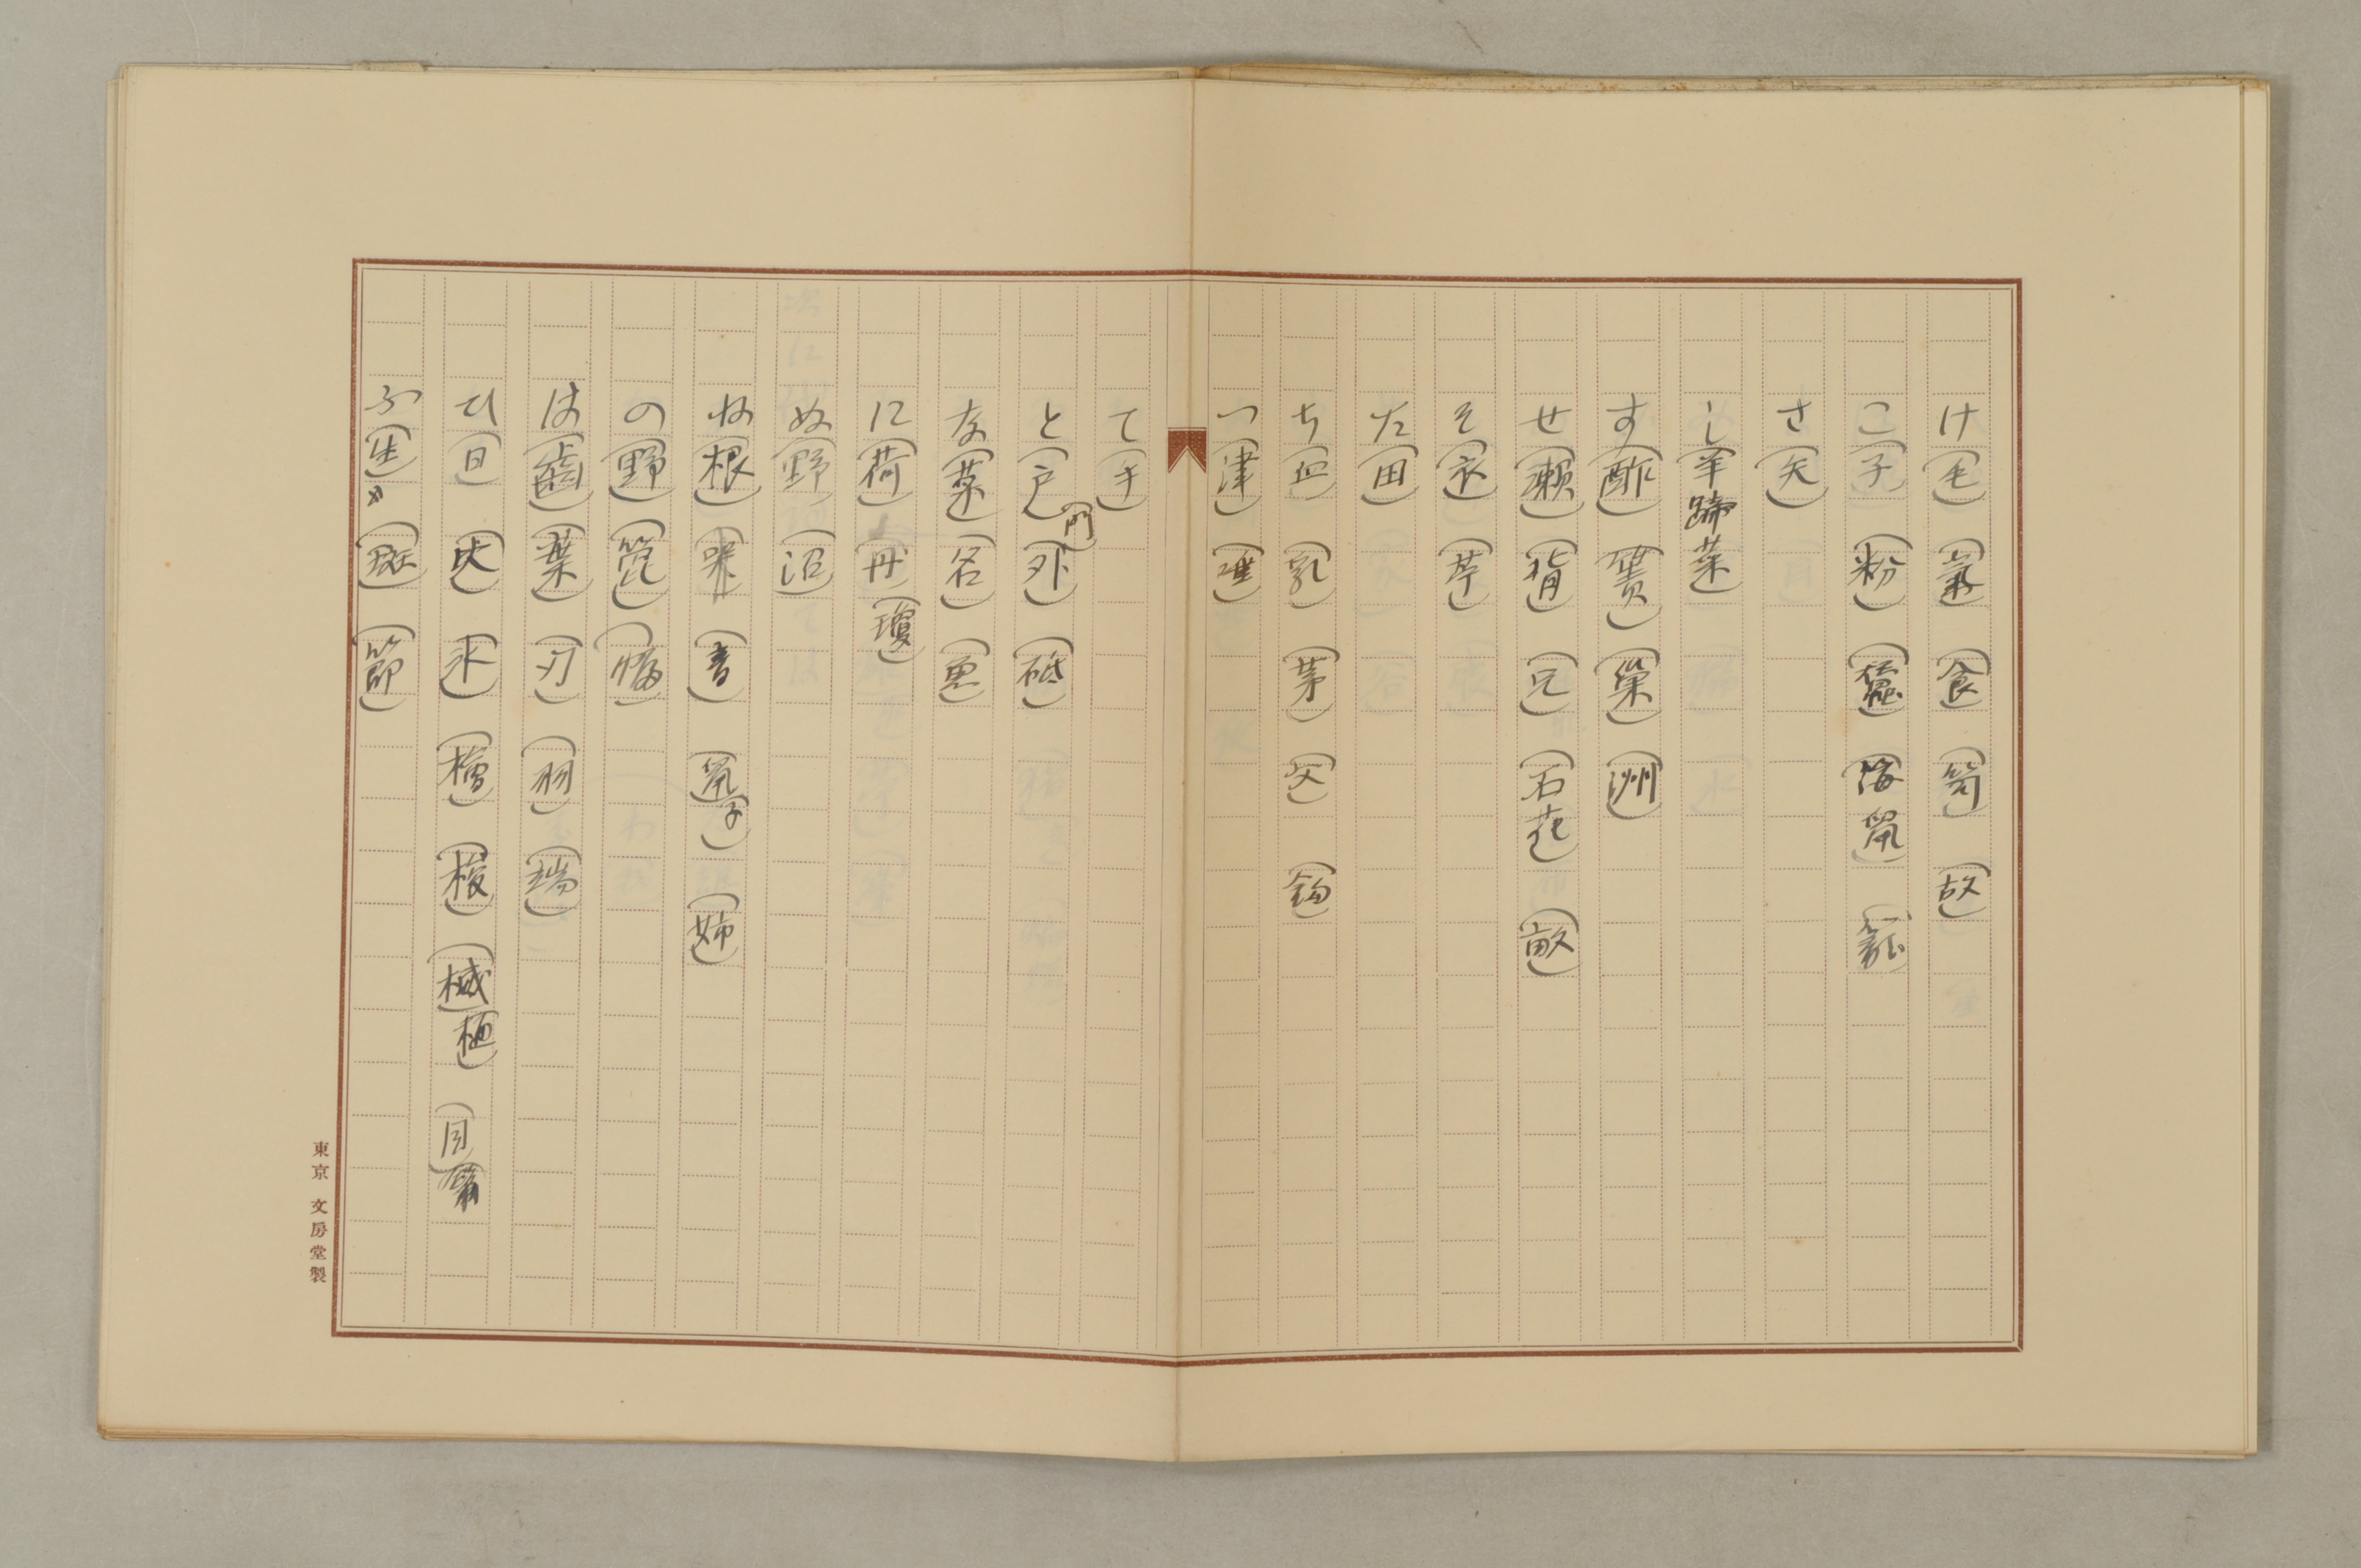 け(毛)(氣)(食)(笥)(故)
こ(子)(粉)(蠶)(海鼠)(籠)
さ(矢)
し(羊蹄菜)
す(酢)(簀)(巣)(洲)
せ(瀬)(背)(兄)(石花)(畝)
そ(衣)(苧)
た(田)
ち(血)(乳)(茅)(父)(鉤)
つ(津)(唾)
て(手)
と(戸)(門)(外)(砥)
な(菜)(名)(魚)
に(荷)(丹)(瓊)
ぬ(野)(沼)
ね(根)(哭)(音)(鼠)(子)(姉)
の(野)(箆)(幅)
は(齒)(葉)(刃)(羽)(端)
ひ(日)(火)(氷)(檜)(梭)(楲)(樋)
ふ(生)(斑)(節)
東京 文房堂製